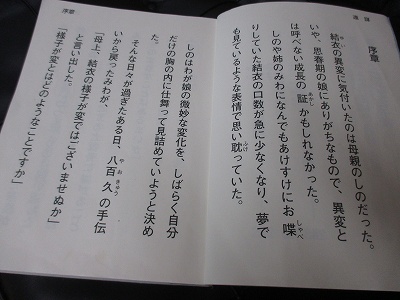 序章
ゆい
結衣の異変に気付いたのは母親のしのだった。
いや、思春期の娘にありがちなもので、異変と
あかし
は呼べない成長の証かもしれなかった。
しゃべ
しのや姉のみわになんでもあけすけにお喋
りしていた結衣の口数が急に少なくなり、夢で
ふけ
も見ているような表情で思い耽っていた。
序章
しのはわが娘の微妙な変化を、しばらく自分
だけの胸の内に仕舞って見詰めていようと決め
た。
やおきゅう
そんな日々が過ぎたある日、八百久の手伝
いから戻ったみわが、
「母上、結衣の様子が変ではございませぬか」
と言い出した。
「様子が変とはどのようなことですか」